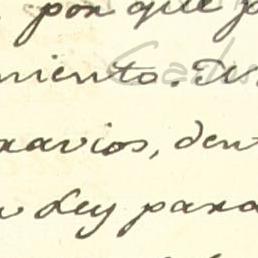 por que p
miento. Es
ravios, dent
Ley para